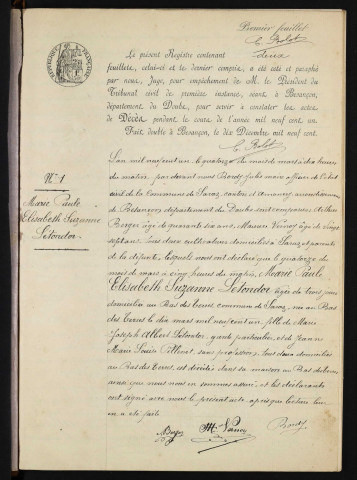 Premier feuillet
E. Bolot
Le présent Registre contenant deux
feuillets, celui-ci et le dernier compris, a été coté et paraphé
par nous, Juge, pour empêchement de M. le Président du
Tribunal civil de première instance, séant à Besançon,
département du Doubs, pour servir à constater les actes
de Décès pendant le cours de l'année mil neuf cent un.
Fait double à Besançon, le dix Décembre mil neuf cent.
E. Bolot
N° 1
Marie Paule
Elisabeth Suzanne
Létondor
L'an mil neuf cent un le quatorze du mois de mars à dix heures
du matin, par devant nous maire officier de l'état
civil de la Commune de Saraz, canton d'Amancey arrondissement
de Besançon, département du Doubs sont comparus
Berger âgé de quarante six ans, Vernoy âgé de vingt
sept ans tous deux cultivateurs domiciliés à Saraz
de la défunte, lesquels nous ont déclaré que le quatorze du
mois de mars à cinq heures du matin, Marie Paule
Elisabeth Suzanne Létondor âgée de trois jours
domiciliée au Bas des commune de Saraz, née au Bas
des le dix mars mil neuf cent un, fille de Marie
Joseph Albert Létondor, garde particulier, et de Jeanne
Marie Louise sans profession, tous deux domiciliés
au Bas des est décédée dans sa maison au Bas
ainsi que nous nous en sommes assuré, et les déclarants
ont signé avec nous le présent acte, après que lecture leur
en a été faite
Berger Vernoy